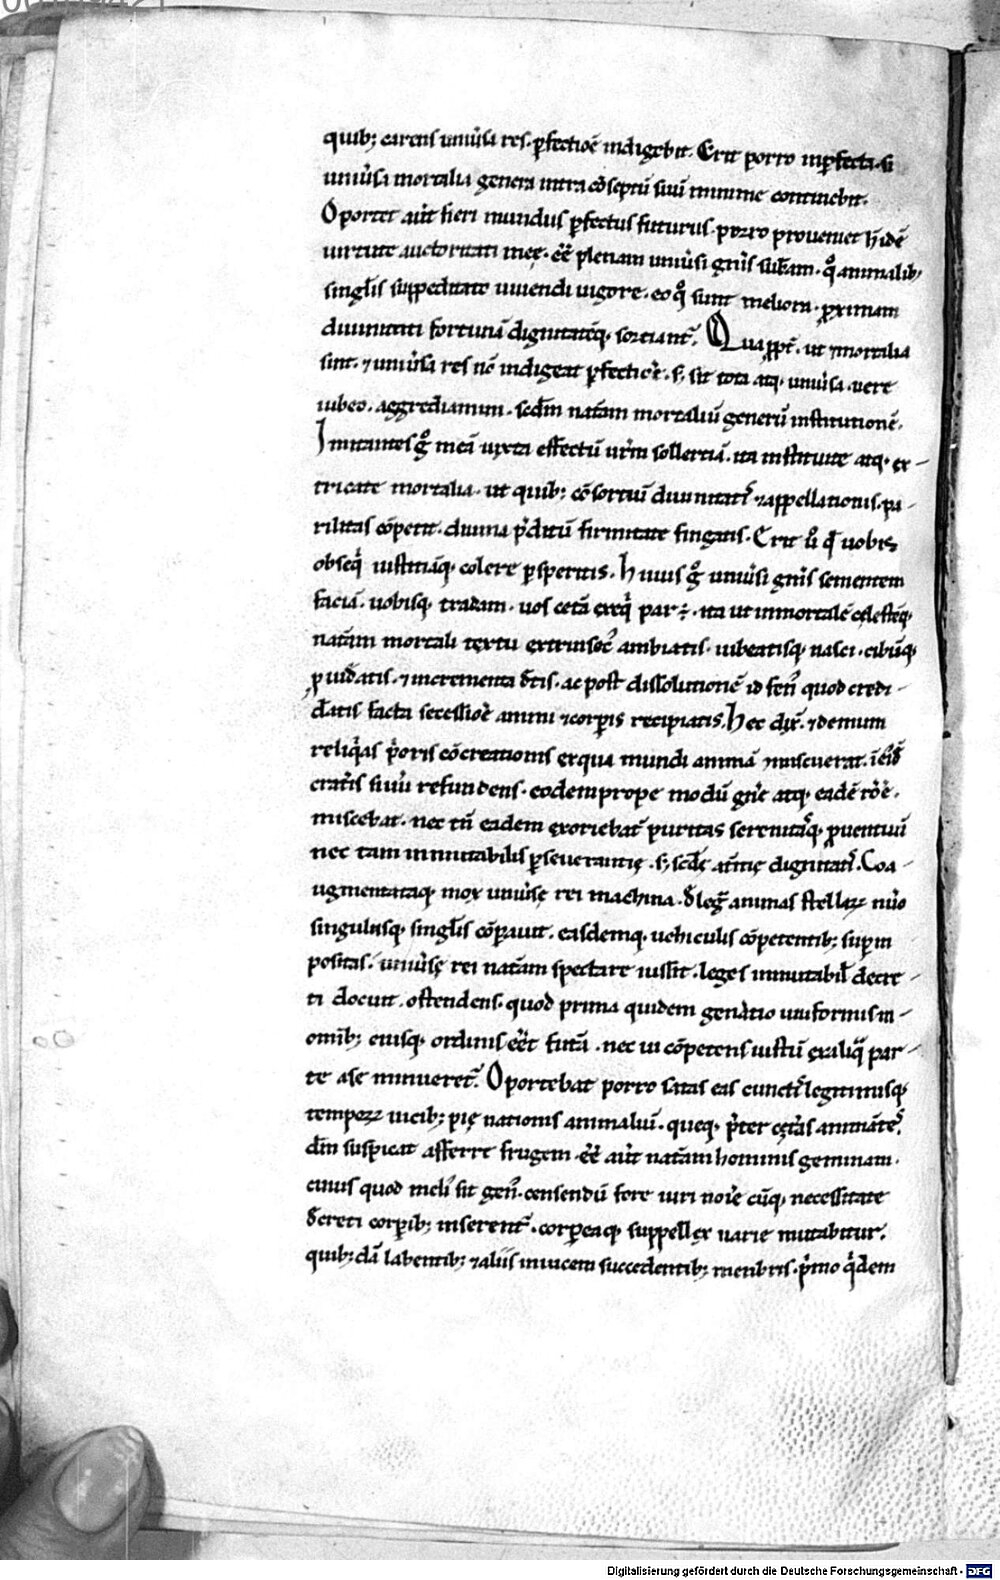 quib; carens uniūsa res. ꝑfectiōe indigebit. Erit porro inꝑfecta. si
uniūsa mortalia genera intra cōseptū suū minime continebit.
Oportet aūt fieri mundus ꝑfectus futurus. porro proueniet h̄ idē
uirtute auctoritati meę. eē plenam uniūsi gn̄is subām. qđ animalib;
singl̄is suppeditato uiuendi uigore. eo qđ sunt meliora. ꝓximam
diuinitati fortunā dignitatēq; sortiant᷑. Quapp̄t. ut ⁊ mortalia
sint. ⁊ uniūsa res nō indigeat ꝑfectiōe. s; sit tota atq; uniūsa. uere
iubeo. aggrediamini. scd̄m natām mortaliū generū institutionē.
Imitantes gͦ meā iuxta effectū urm̄ sollertiā. ita instituite atq; ex-
tricate mortalia. ut quib; cōsortiū diuinitatis ⁊ appellationis pa-
rilitas cōpetit. diuina p̄ditū firmitate fingatis. Erit ū q̄ uobis
obseq̄ iustitiāq; colere ꝓsperitis. Huius gͦ uniūsi gn̄is sementem
faciā. uobisq; tradam. uos cetā exeq̄ par ÷. ita ut inmortalē cęlestēq;
natām mortali textu extrinsec᷑ ambiatis. iubeatisq; nasci. cibūq;
ꝓuid̄atis. ⁊ incrementa d̄tis. ac post dissolutionē id fen᷑ quod credi-
d̄atis facta secessiōe animi ⁊ corꝑis recipiatis. Hec dix̄. ⁊ demum
reliq̄as p̄oris cōcreationis ex qua mundi animā miscuerat. ī eid̄
crat̄is sinū refundens. eodem prope modū gn̄e atq; eadē rōe.
miscebat. nec tn̄ eadem exoriebat᷑ puritas serenitasq; ꝓuentuū
nec tam inmutabilis ꝑseuerantię. s; scd̄ę at̄tię dignitat̄. Coa-
ugmentataq; mox uniūsę rei machina. d̄leḡ animas stellaꝝ nūo
singulasq; singl̄is cōparauit. easdemq; uehiculis cōpetentib; suꝑim
positas. uniūsę rei natām spectare iussit. leges inmutabil̄ decre-
ti docuit. ostendens. quod prima quidem gen̄atio uniformis in-
omīb; eiusq; ordinis eēt futā. nec ui cōpetens iustū ex aliq̄ par-
te a se minueret᷑. Oportebat porro satas eas cunct̄ legitimisq;
tempoꝝ uicib; pię nationis animaliū. queq; p̄ter cęt̄as animātes
dm̄ suspicat᷑ afferre frugem. eē aūt natām hominis geminam.
cuius quod meli᷑ sit gen᷑. censendū fore uiri noīe cūq; necessitate
d̄creti corꝑib; inserent᷑. corꝑeaq; suppellex uarie mutabitur.
quib; dā labentib; ⁊ aliis inuicem succedentib; mēbris. p̄mo q̄dem
Digitalisierung gefördert durch die Deutsche Forschungsgemeinschaft - DFG